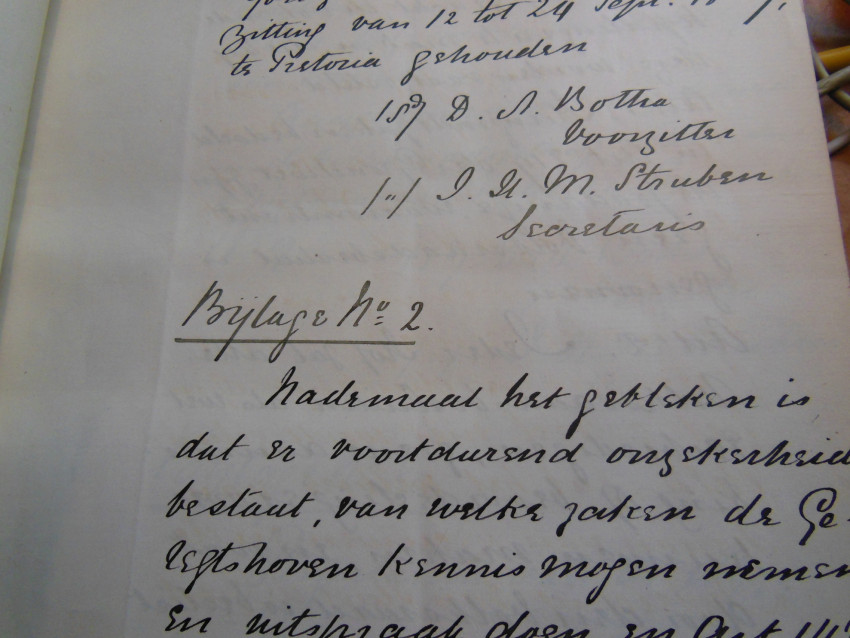 Zitting van 12 tot 24 Sept.
te Pretoria gehouden
D. A. Botha
Voorzitter
J. H. M. Struben
Secretaris
Bijlage No 2.
Nademaal het gebleken is
dat er voortdurend onzekerheid
bestaat, van welke zaken de Ge-
regtshoven kennis mogen nemen
En uitspraak doen en Art